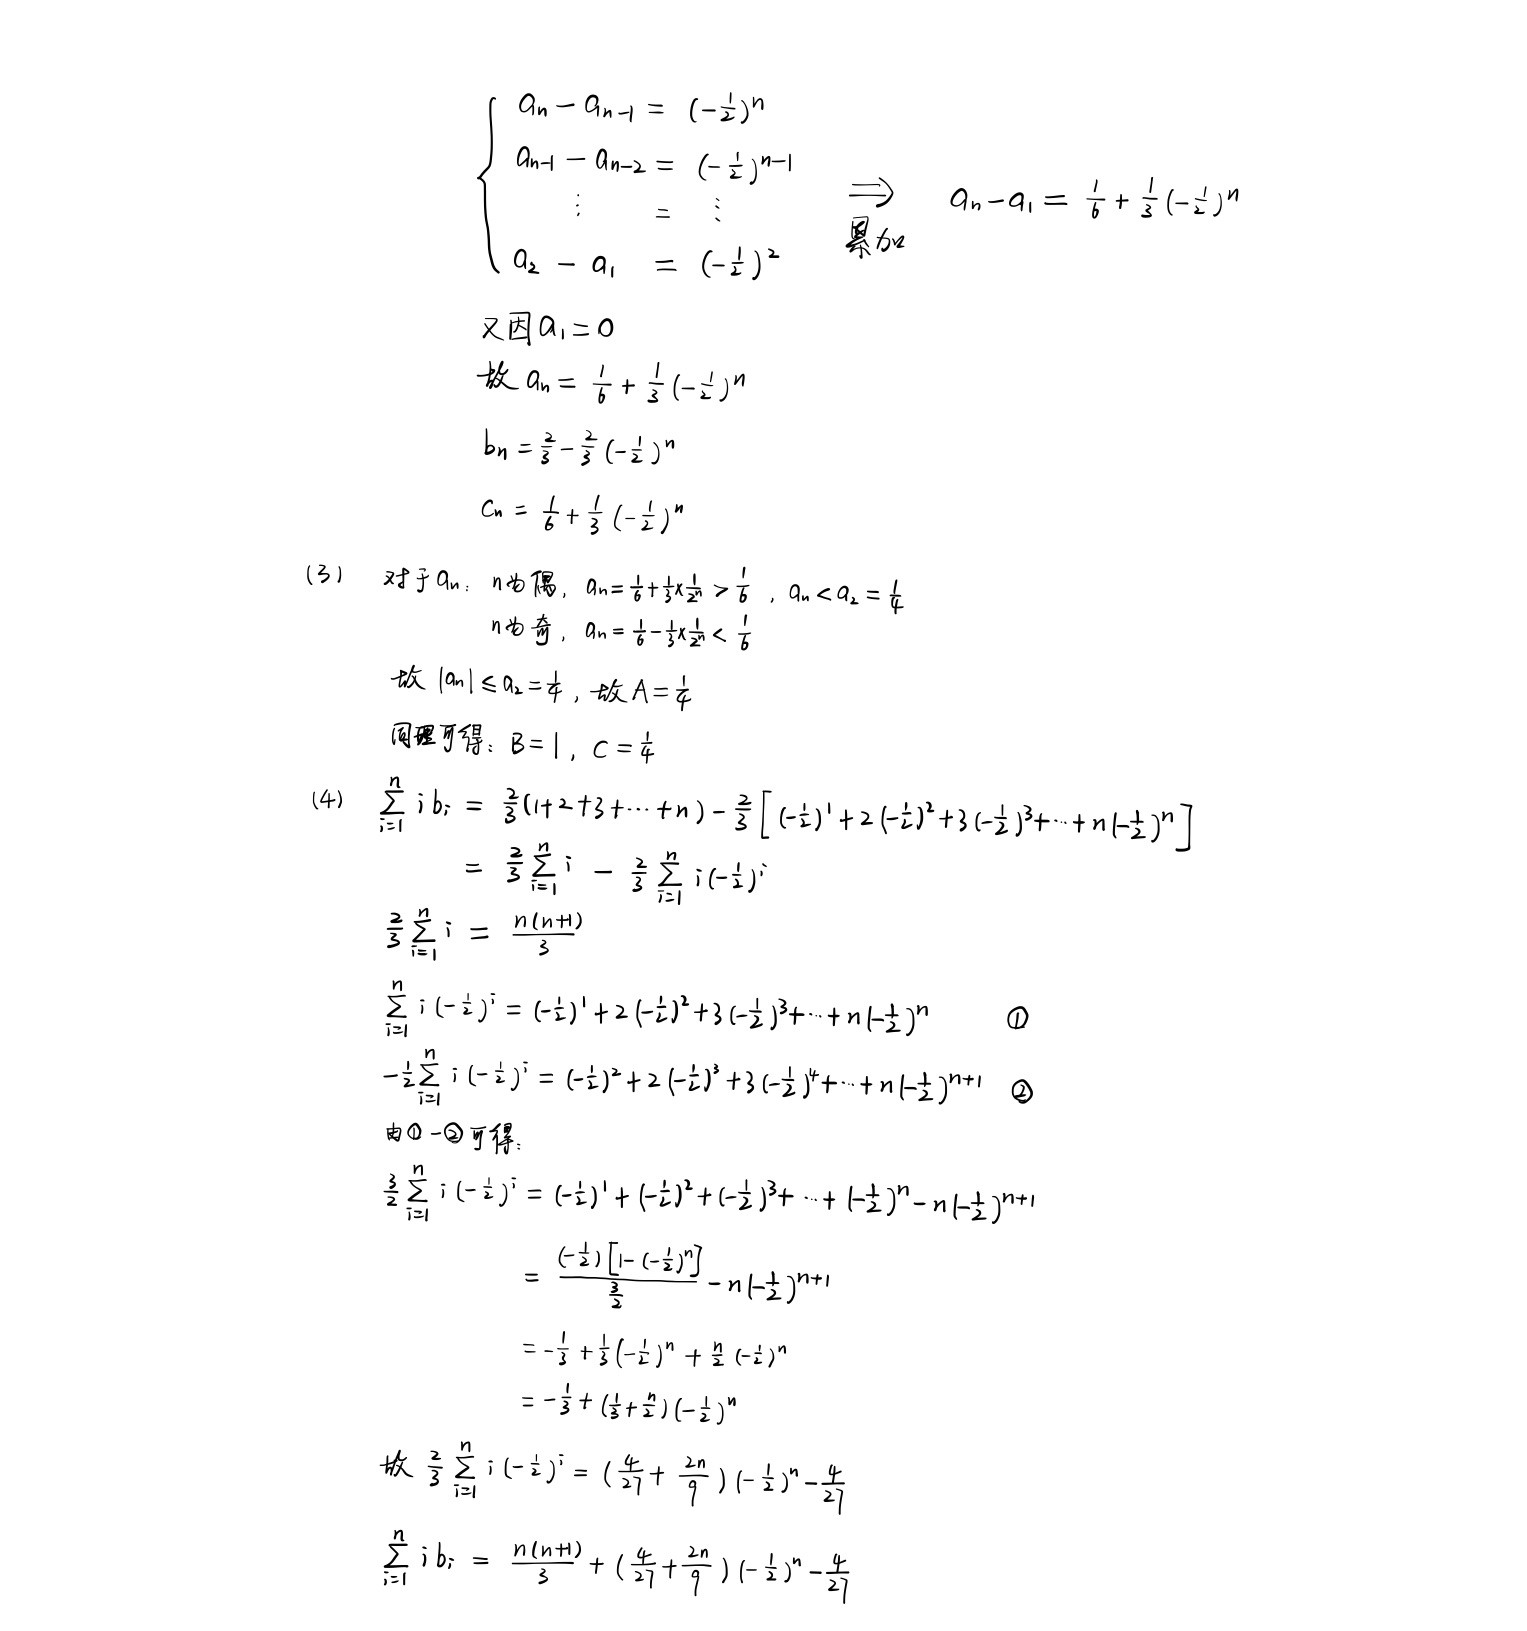 a_n - a_{n-1} = (-1/2)^n
a_{n-1} - a_{n-2} = (-1/2)^{n-1}
⋮ = ⋮
a_2 - a_1 = (-1/2)^2
⟹ 累加 a_n - a_1 = 1/6 + 1/3(-1/2)^n
又因a_1 = 0
故 a_n = 1/6 + 1/3(-1/2)^n
b_n = 2/3 - 2/3(-1/2)^n
c_n = 1/6 + 1/3(-1/2)^n
(3) 对于a_n: n为偶, a_n = 1/6 + 1/3×1/2^n > 1/6, a_n < a_2 = 1/4
n为奇, a_n = 1/6 - 1/3×1/2^n < 1/6
故 |a_n| ≤ a_2 = 1/4, 故A = 1/4
同理可得: B = 1, C = 1/4
(4) ∑_{i=1}^{n} i b_i = 2/3(1+2+3+⋯+n) - 2/3[(-1/2)^1 + 2(-1/2)^2 + 3(-1/2)^3 + ⋯ + n(-1/2)^n]
= 2/3 ∑_{i=1}^{n} i - 2/3 ∑_{i=1}^{n} i(-1/2)^i
2/3 ∑_{i=1}^{n} i = n(n+1)/3
∑_{i=1}^{n} i(-1/2)^i = (-1/2)^1 + 2(-1/2)^2 + 3(-1/2)^3 + ⋯ + n(-1/2)^n ①
-1/2 ∑_{i=1}^{n} i(-1/2)^i = (-1/2)^2 + 2(-1/2)^3 + 3(-1/2)^4 + ⋯ + n(-1/2)^{n+1} ②
由①-②可得:
3/2 ∑_{i=1}^{n} i(-1/2)^i = (-1/2)^1 + (-1/2)^2 + (-1/2)^3 + ⋯ + (-1/2)^n - n(-1/2)^{n+1}
= (-1/2)[1-(-1/2)^n] / (3/2) - n(-1/2)^{n+1}
= -1/3 + 1/3(-1/2)^n + n/2(-1/2)^n
= -1/3 + (1/3 + n/2)(-1/2)^n
故 2/3 ∑_{i=1}^{n} i(-1/2)^i = (4/27 + 2n/9)(-1/2)^n - 4/27
∑_{i=1}^{n} i b_i = n(n+1)/3 + (4/27 + 2n/9)(-1/2)^n - 4/27